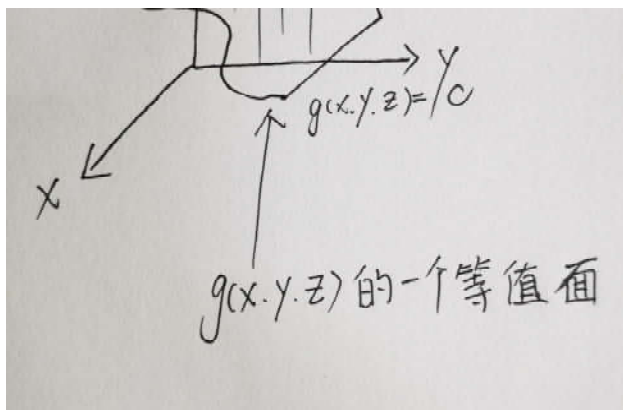 y
g(x.y.z)=/c
x
g(x.y.z)的一个等值面